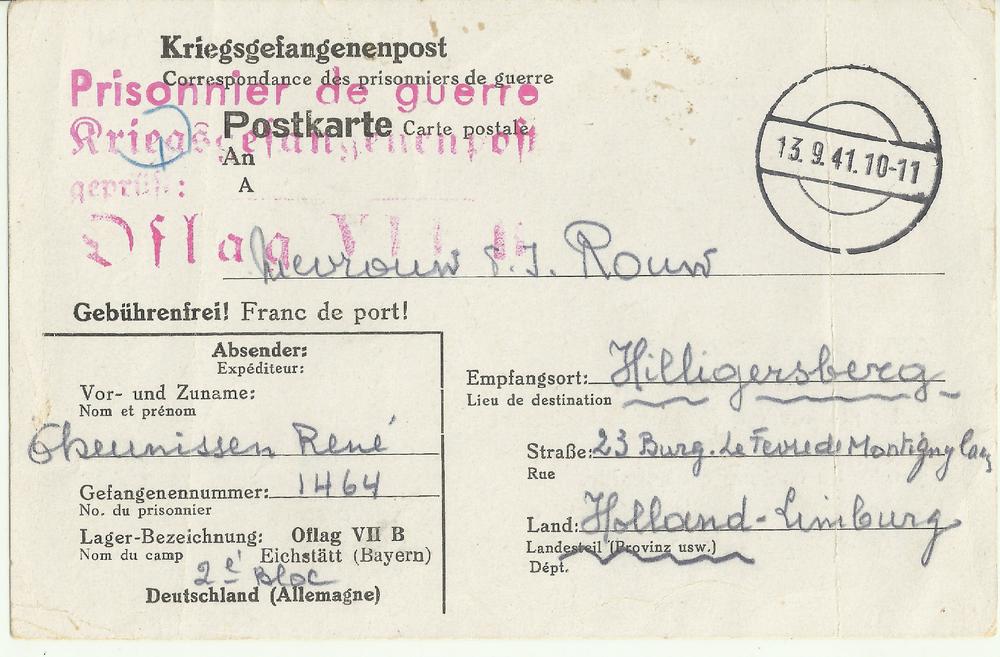 Kriegsgefangenenpost
Correspondance des prisonniers de guerre
Prisonnier de guerre
Postkarte Carte postale
Kriegsgefangenenpost
An
A
geprüft:
Oflag VII B
13.9.41.10-11
Mevrouw Rouw
Gebührenfrei! Franc de port!
Absender:
Expéditeur:
Vor- und Zuname:
Nom et prénom
Theunissen René
Gefangenennummer: 1464
No. du prisonnier
Lager-Bezeichnung: Oflag VII B
Nom du camp Eichstätt (Bayern)
2é Bloc
Deutschland (Allemagne)
Empfangsort: Hilligersberg
Lieu de destination
Straße: 23 Burg. Le Fevre de Montigny
Rue
Land: Holland-Limburg
Landesteil (Provinz usw.)
Dépt.